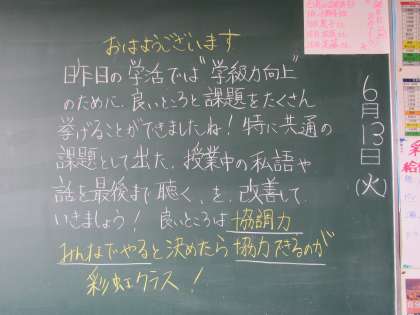 おはようございます
昨日の学活では"学級力向上"
のために、良いところと課題をたくさん
挙げることができましたね！特に共通の
課題として出た、授業中の私語や
話を最後まで聴く、を、改善して
いきましょう！良いところは協調力
みんなでやると決めたら協力できるのが
彩虹クラス！
6月13日(火)